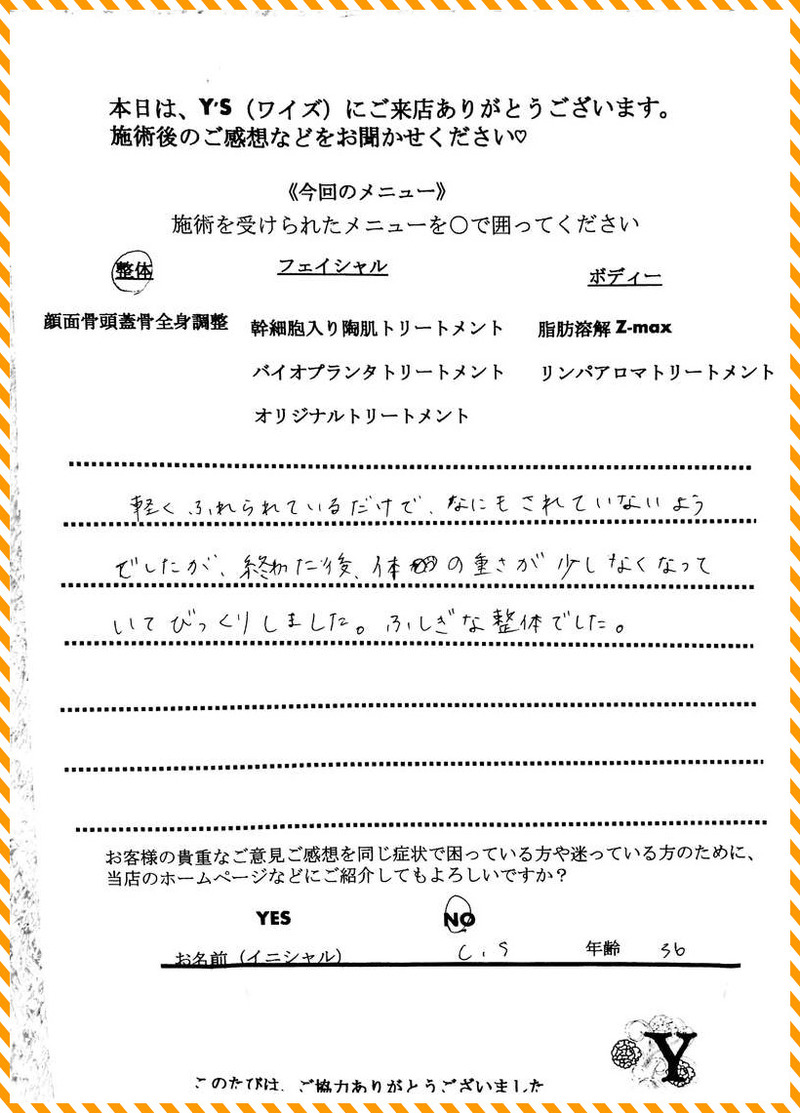 本日は、Y・S（ワイズ）にご来店ありがとうございます。
施術後のご感想などをお聞かせください♡
《今回のメニュー》
施術を受けられたメニューを〇で囲ってください
整体 フェイシャル ボディー
顔面骨頭蓋骨全身調整 幹細胞入り陶肌トリートメント 脂肪溶解 Z-max
バイオプランタトリートメント リンパアロマトリートメント
オリジナルトリートメント
軽くふれられているだけで、なにもされていないよう
でしたが、終わた後、体の重さが少しなくなって
いてびっくりしました。ふしぎな整体でした。
お客様の貴重なご意見ご感想を同じ症状で困っている方や迷っている方のために、
当店のホームページなどにご紹介してもよろしいですか？
YES NO
お名前（イニシャル） C.S 年齢 36
Y
このたびは、ご協力ありがとうございました